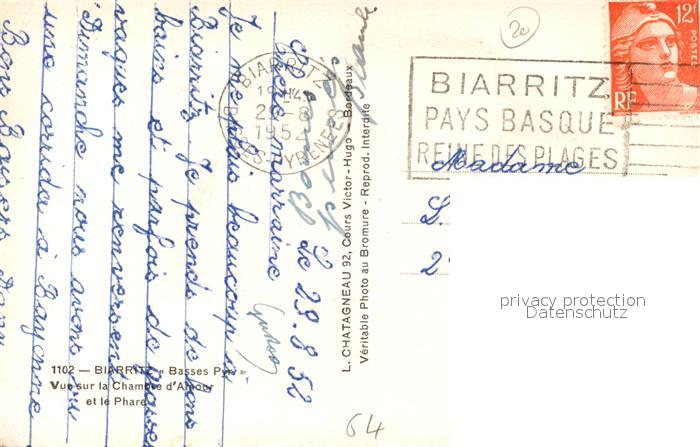 Le 29.8.52
Chère marraine
Je me plais beaucoup à
Biarritz. Je prends de bons
bains et parfois de grosses
vagues me renversent
Dimanche nous avons vu
une corrida à Bayonne
Bons Baisers
1102 — BIARRITZ « Basses Pyr. »
Vue sur la Chambre d'Amour
et le Phare
L. CHATAGNEAU 92, Cours Victor-Hugo - Bordeaux
Véritable Photo au Bromure - Reprod. Interdite
BIARRITZ
1952
BSES PYRENEES
BIARRITZ
PAYS BASQUE
REINE DES PLAGES
12F
POSTES
RF
Madame
privacy protection
Datenschutz
64
20